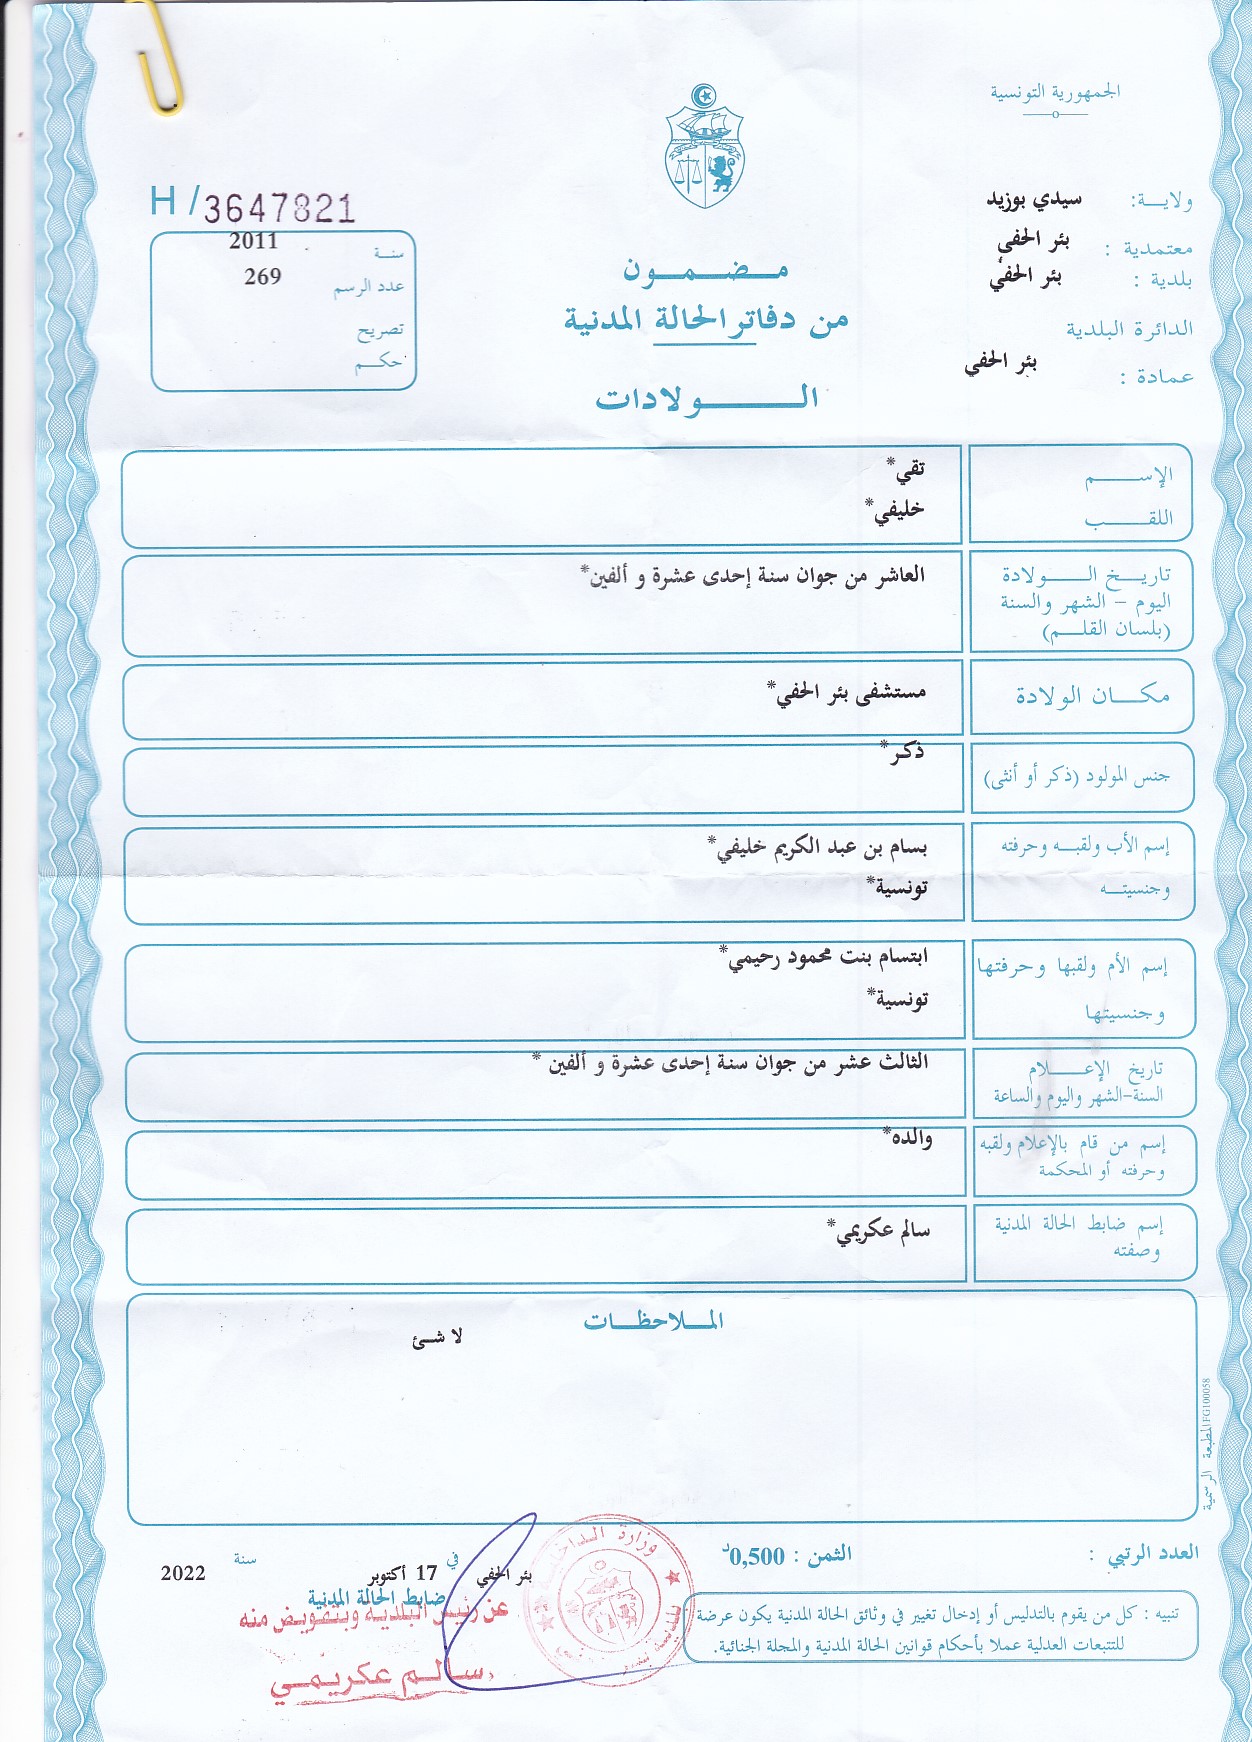 الجمهورية التونسية
ولايـــة: سيدي بوزيد
معتمدية : بئر الحفي
بلدية : بئر الحفي
الدائرة البلدية
عمادة : بئر الحفي
H / 3647821
سنـة 2011
عدد الرسم 269
تصريح
حكـــم
مـــضـــمـــون
من دفاتر الحالة المدنية
الـــــولادات
الإســـــم تقي*
اللقـــــب خليفي*
تاريـــخ الـــــولادة العاشر من جوان سنة إحدى عشرة و ألفين*
اليوم – الشهر والسنة
(بلسان القلـــم)
مكـــان الولادة مستشفى بئر الحفي*
جنس المولود (ذكر أو أنثى) ذكر*
إسم الأب ولقبـــه وحرفته بسام بن عبد الكريم خليفي*
وجنسيتـــه تونسية*
إسم الأم ولقبها وحرفتها ابتسام بنت محمود رحيمي*
وجنسيتها تونسية*
تاريخ الإعـــــلام الثالث عشر من جوان سنة إحدى عشرة و ألفين *
السنة-الشهر واليوم والساعة
إسم من قام بالإعلام ولقبه والده*
وحرفته أو المحكمة
إسم ضابط الحالة المدنية سالم عكريمي*
وصفته
المـــلاحظـــات
لا شئ
المطبعة الرسمية FG100058
العدد الرتبي :
الثمن : 0,500د
بئر الحفي في 17 أكتوبر سنة 2022
ضابط الحالة المدنية
عن رئيس البلدية وبتفويض منه
سالم عكريمي
وزارة الداخلية
تنبيه : كل من يقوم بالتدليس أو إدخال تغيير في وثائق الحالة المدنية يكون عرضة
للتتبعات العدلية عملا بأحكام قوانين الحالة المدنية والمجلة الجنائية.